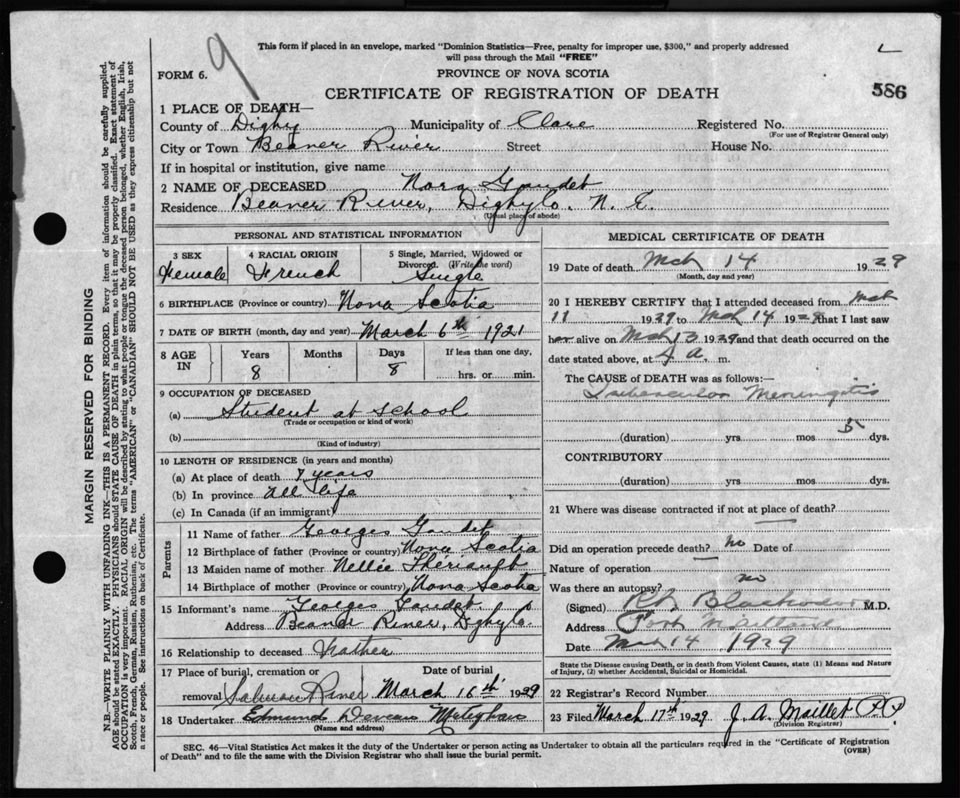 9
L
This form if placed in an envelope, marked "Dominion Statistics—Free, penalty for improper use, $300," and properly addressed
will pass through the Mail "FREE"
FORM 6.
PROVINCE OF NOVA SCOTIA
CERTIFICATE OF REGISTRATION OF DEATH
586
1 PLACE OF DEATH—
County of Digby Municipality of Clare Registered No.
(For use of Registrar General only)
City or Town Beaver River Street House No.
If in hospital or institution, give name
2 NAME OF DECEASED Nora Gaudet
Residence Beaver River, Digby Co. N. S.
(Usual place of abode)
PERSONAL AND STATISTICAL INFORMATION
3 SEX Female
4 RACIAL ORIGIN French
5 Single, Married, Widowed or
Divorced. (Write the word)
Single
6 BIRTHPLACE (Province or country) Nova Scotia
7 DATE OF BIRTH (month, day and year) March 6th 1921
8 AGE IN
Years 8
Months
Days 8
If less than one day,
hrs. or min.
9 OCCUPATION OF DECEASED
(a) Student at school
(Trade or occupation or kind of work)
(b)
(Kind of industry)
10 LENGTH OF RESIDENCE (in years and months)
(a) At place of death 7 years
(b) In province all life
(c) In Canada (if an immigrant)
Parents
11 Name of father Georges Gaudet
12 Birthplace of father (Province or country) Nova Scotia
13 Maiden name of mother Nellie Theriault
14 Birthplace of mother (Province or country) Nova Scotia
15 Informant's name Georges Gaudet
Address Beaver River, Digby Co
16 Relationship to deceased Father
17 Place of burial, cremation or Date of burial
removal Salmon River March 16th 1929
18 Undertaker Edmund Deveau Meteghan
(Name and address)
MEDICAL CERTIFICATE OF DEATH
19 Date of death Mch 14 1929
(Month, day and year)
20 I HEREBY CERTIFY that I attended deceased from Mch
11 1929 to Mch 14 1929 that I last saw
her alive on Mch 13 1929 and that death occurred on the
date stated above, at 4 a. m.
The CAUSE of DEATH was as follows:—
Tubercular Meningitis
(duration) yrs. mos 5 dys.
CONTRIBUTORY
(duration) yrs. mos dys.
21 Where was disease contracted if not at place of death?
Did an operation precede death? no Date of
Nature of operation
Was there an autopsy? no
(Signed) M.D.
Address Port Maitland
Date Mch 14 1929
State the Disease causing Death, or in death from Violent Causes, state (1) Means and Nature
of Injury, (2) whether Accidental, Suicidal or Homicidal.
22 Registrar's Record Number
23 Filed March 17th 1929 J. A. Maillet P.P.
(Division Registrar)
SEC. 46—Vital Statistics Act makes it the duty of the Undertaker or person acting as Undertaker to obtain all the particulars required in the "Certificate of Registration
of Death" and to file the same with the Division Registrar who shall issue the burial permit.
(OVER)
MARGIN RESERVED FOR BINDING
N.B.—WRITE PLAINLY WITH UNFADING INK—THIS IS A PERMANENT RECORD. Every item of information should be carefully supplied.
AGE should be stated EXACTLY. PHYSICIANS should STATE CAUSE OF DEATH in plain terms, so that it may be properly classified. Exact statement of
OCCUPATION is very important. RACIAL ORIGIN will be described by stating to what people or tongue the deceased person belonged, whether English, Irish,
Scotch, French, German, Russian, Ruthenian, etc. The terms "AMERICAN" or "CANADIAN" SHOULD NOT BE USED as they express citizenship but not
a race or people. See instructions on back of Certificate.